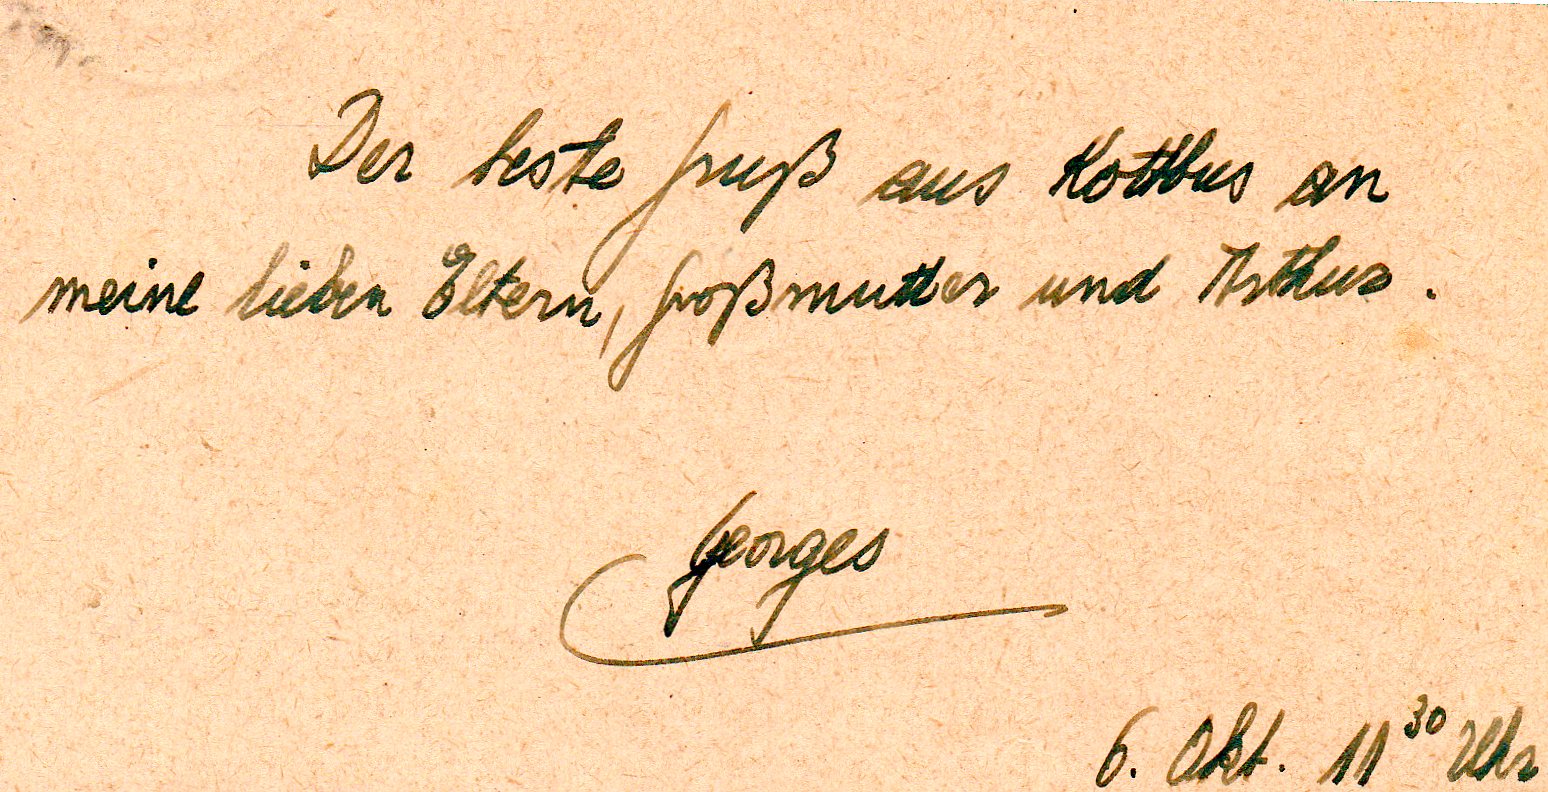 Der beste Gruß aus Kottbus an
meine lieben Eltern, Großmutter und Arthur.
Georges
6. Okt. 11³⁰ Uhr